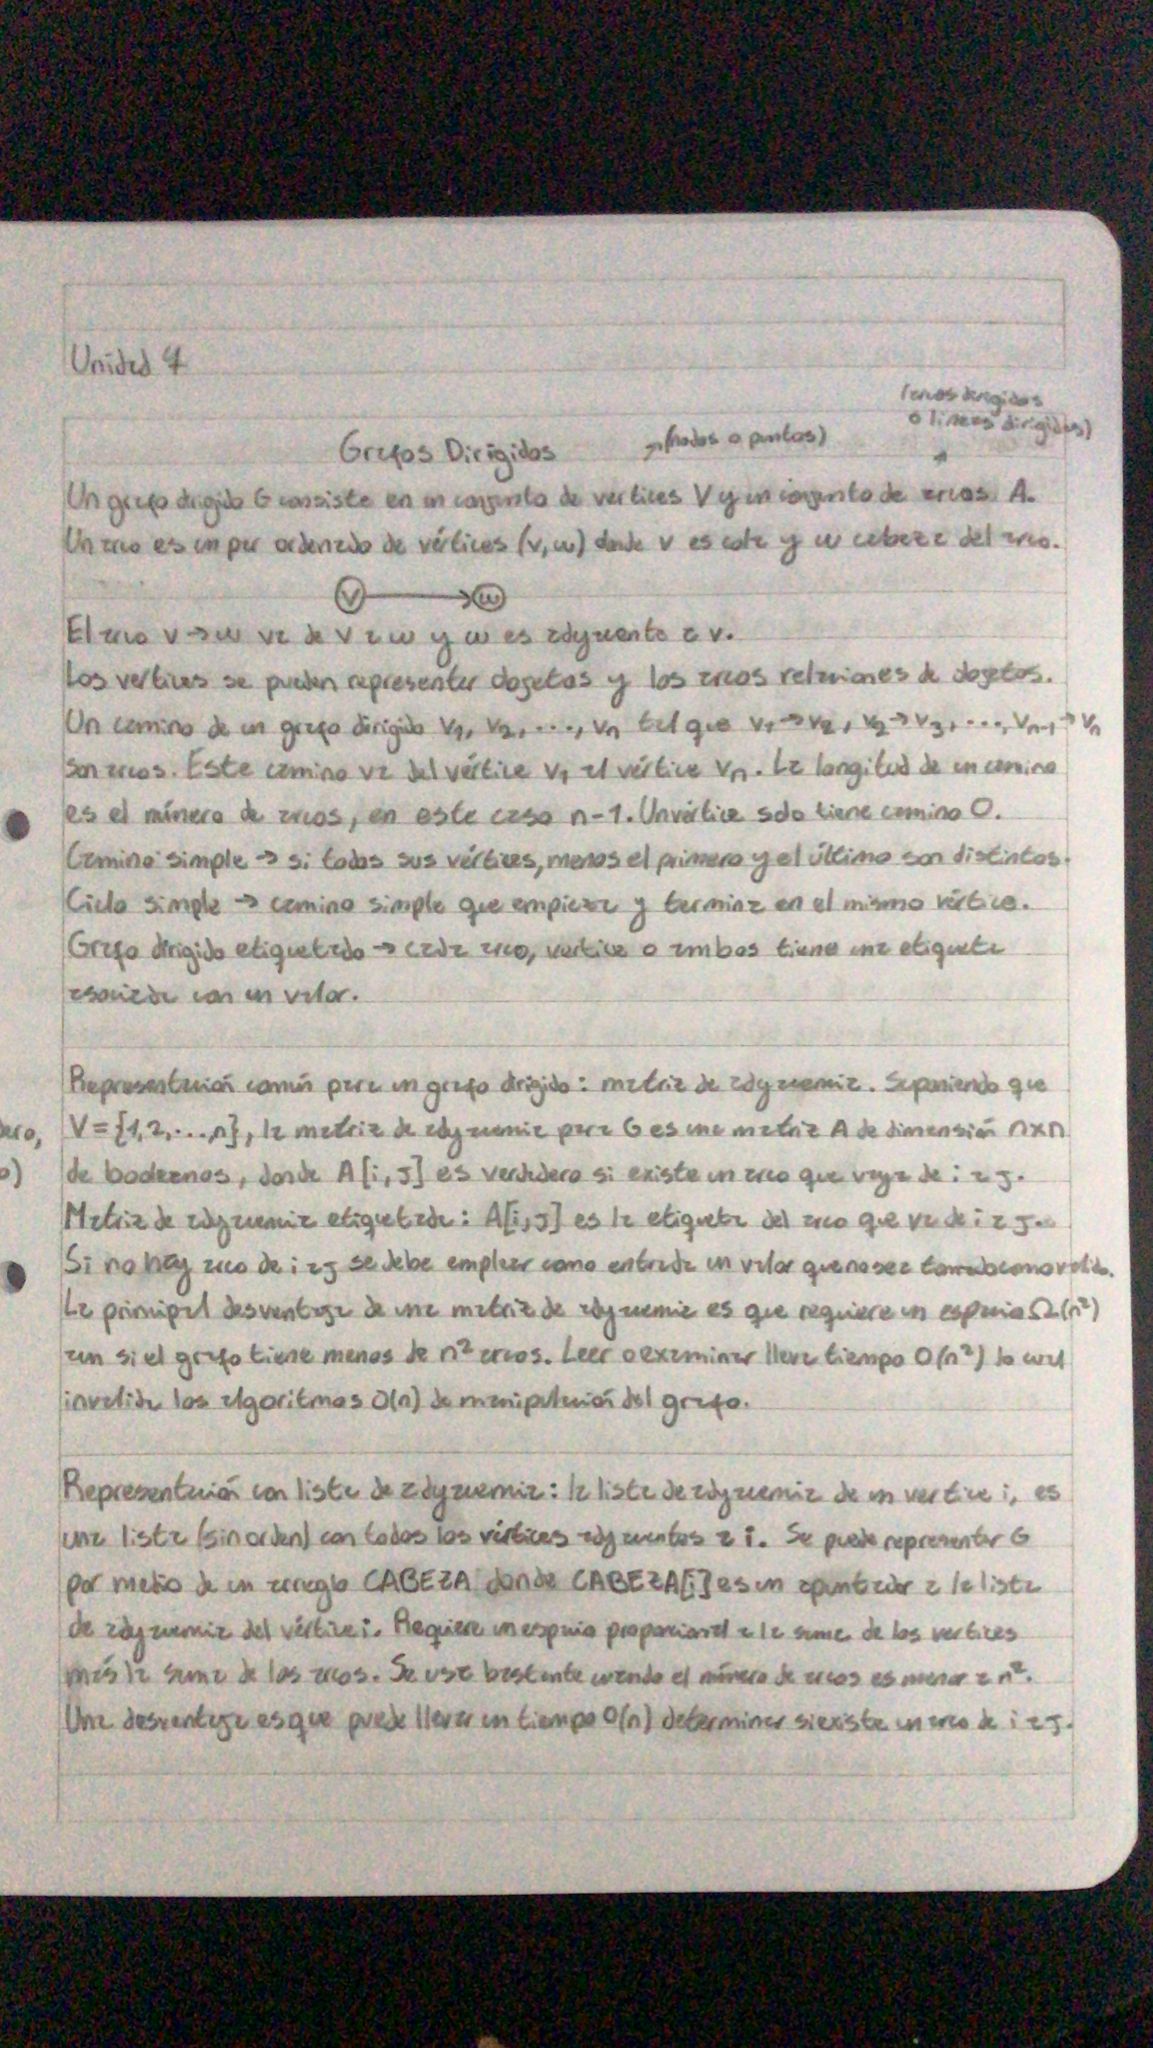 Unidad 4
(arcos dirigidos
o líneas dirigidas)
Grafos Dirigidos →(nodos o puntos)
Un grafo dirigido G consiste en un conjunto de vertices V y un conjunto de arcos A.
Un arco es un par ordenado de vértices (v, w) donde v es cola y w cabeza del arco.
v → w
El arco v→w va de v a w y w es adyacente a v.
Los vertices se pueden representar objetos y los arcos relaciones de objetos.
Un camino de un grafo dirigido v1, v2, ..., vn tal que v1→v2, v2→v3, ..., vn-1→vn
son arcos. Este camino va del vértice v1 al vértice vn. La longitud de un camino
es el número de arcos, en este caso n-1. Un vértice solo tiene camino 0.
Camino simple → si todos sus vértices, menos el primero y el último son distintos.
Ciclo simple → camino simple que empieza y termina en el mismo vértice.
Grafo dirigido etiquetado → cada arco, vertice o ambos tiene una etiqueta
asociada con un valor.
Representación común para un grafo dirigido: matriz de adyacencia. Suponiendo que
V={1,2,...,n}, la matriz de adyacencia para G es una matriz A de dimensión nxn
de booleanos, donde A[i,j] es verdadero si existe un arco que vaya de i a j.
Matriz de adyacencia etiquetada: A[i,j] es la etiqueta del arco que va de i a j.
Si no hay arco de i a j se debe emplear como entrada un valor que no sea tomado como valido.
La principal desventaja de una matriz de adyacencia es que requiere un espacio Ω(n²)
aun si el grafo tiene menos de n² arcos. Leer o examinar lleva tiempo O(n²) lo cual
invalida los algoritmos O(n) de manipulación del grafo.
Representación con lista de adyacencia: la lista de adyacencia de un vertice i, es
una lista (sin orden) con todos los vértices adyacentes a i. Se puede representar G
por medio de un arreglo CABEZA donde CABEZA[i] es un apuntador a la lista
de adyacencia del vértice i. Requiere un espacio proporcional a la suma de los vertices
más la suma de los arcos. Se usa bastante cuando el número de arcos es menor a n².
Una desventaja es que puede llevar un tiempo O(n) determinar si existe un arco de i a j.